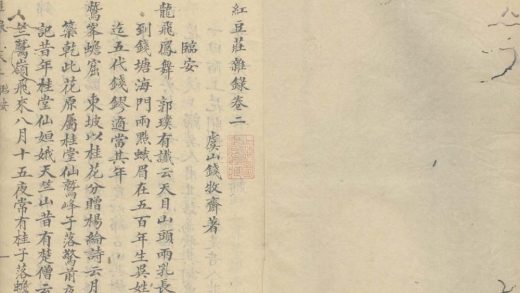 紅豆莊雜錄卷二
虞山錢牧齋著
臨安
龍飛鳳舞 郭璞有讖云天目山頭兩乳長
到錢塘海門兩點蛾眉在五百年生異姓
迄五代錢鏐適當其年
鷲峯蟾窟 東坡以桂花分贈楊綸詩云月
築乾此花原屬桂堂仙鷲峰子落驚前夜
記昔年桂堂仙姮娥天竺山昔有楚僧云
天竺鷲嶺飛來八月十五夜常有桂子落蟾